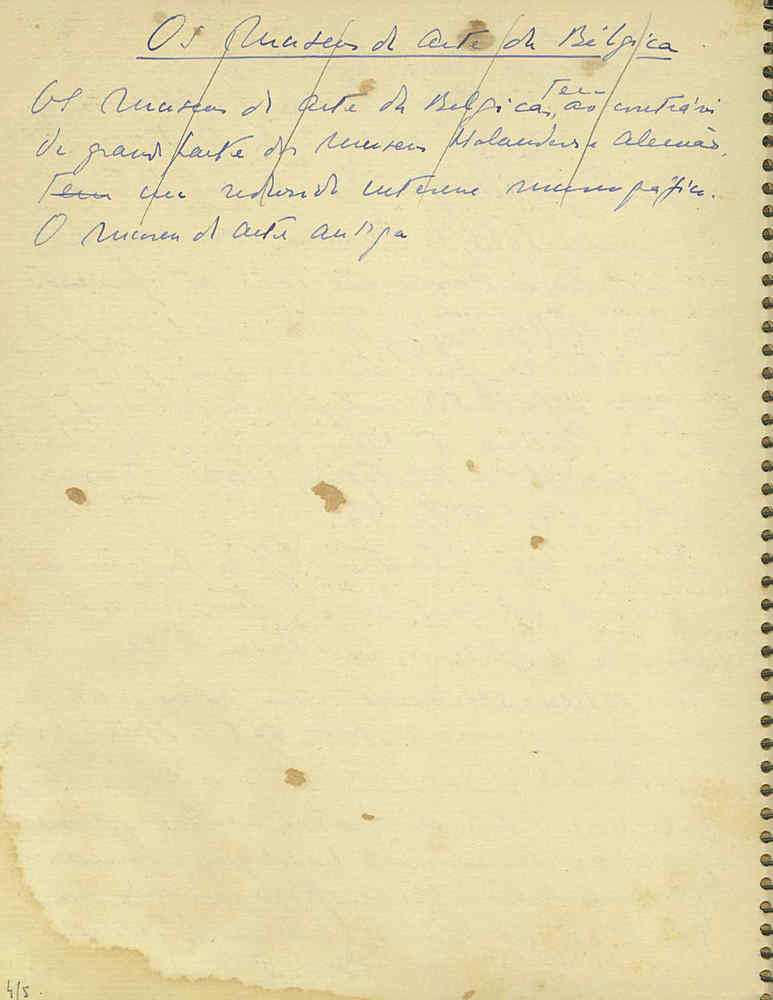 Os Museus de Arte da Bélgica
Os Museus de Arte da Belgica, tem, ao contrário
da grande parte dos Museus Holandeses e Alemães,
tem um reduzido interesse museográfico.
O Museu de Arte antiga
4/5.